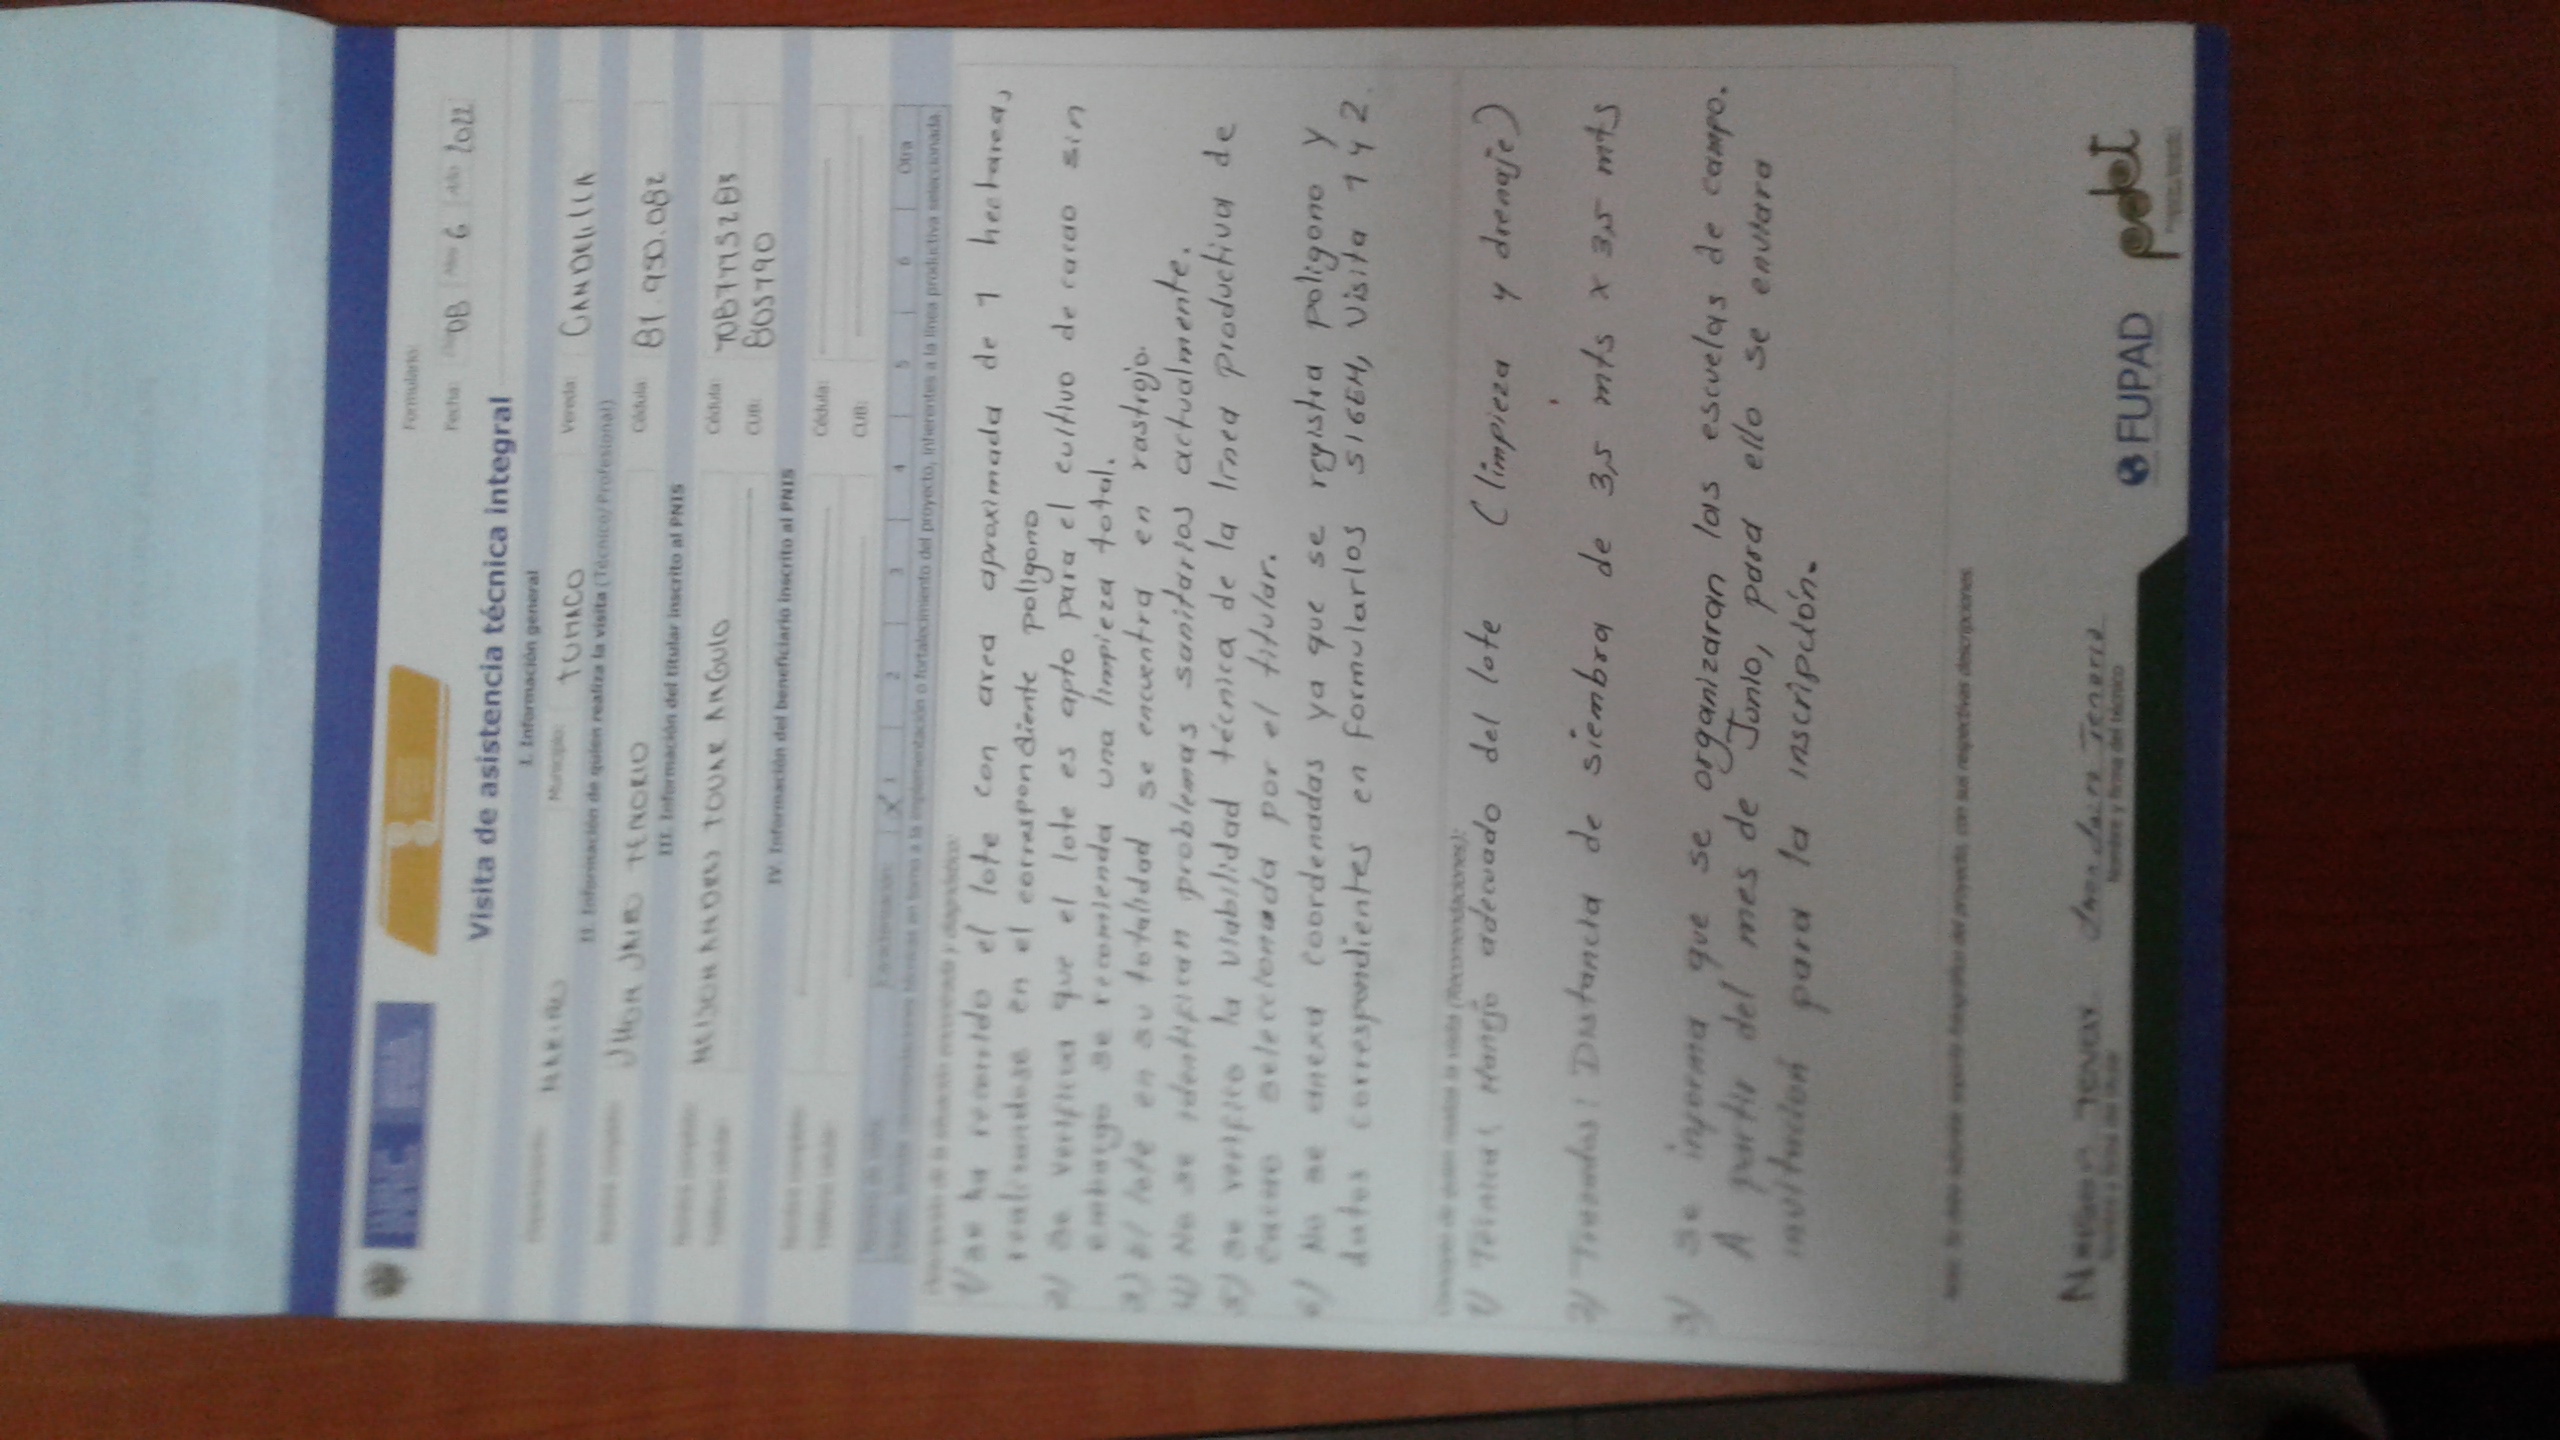 Formulario:
Fecha: Día 08 Mes 6 Año 2022
Visita de asistencia técnica integral
I. Información general
Departamento: NARIÑO Municipio: TUMACO Vereda: CANDELILLA
II. Información de quien realiza la visita (Técnico/Profesional)
Nombre completo: JHON JAIRO TENORIO Cédula: 81.950.082
III. Información del titular inscrito al PNIS
Nombre completo: NELSON ANDRES TOVAR ANGULO Cédula:
CUB: 805790
IV. Información del beneficiario inscrito al PNIS
Nombre completo: Cédula:
CUB:
X 1 2 3 4 5 6 Otra
inherentes a la línea productiva seleccionada.
1) se ha recorrido el lote con area aproximada de 1 hectarea,
realizandose en el correspondiente poligono
2) se verifica que el lote es apto para el cultivo de cacao sin
embargo se recomienda una limpieza total.
3) el lote en su totalidad se encuentra en rastrojo.
4) No se identifican problemas sanitarios actualmente.
5) se verifico la viabilidad técnica de la línea productiva de
cacao seleccionada por el titular.
6) No se anexa coordenadas ya que se registra poligono y
datos correspondientes en formularios SIGEM, visita 1 y 2.
Concepto de quien realiza la visita (Recomendaciones):
1) Técnica: Manejo adecuado del lote (limpieza y drenaje)
2) Trazados: Distancia de siembra de 3,5 mts x 3,5 mts
3) Se informa que se organizaran las escuelas de campo.
A partir del mes de Junio, para ello se enviara
invitacion para la inscripción.
con sus respectivas descripciones
Jhon Jairo Tenorio
Nombre y firma del técnico
FUPAD
pdet